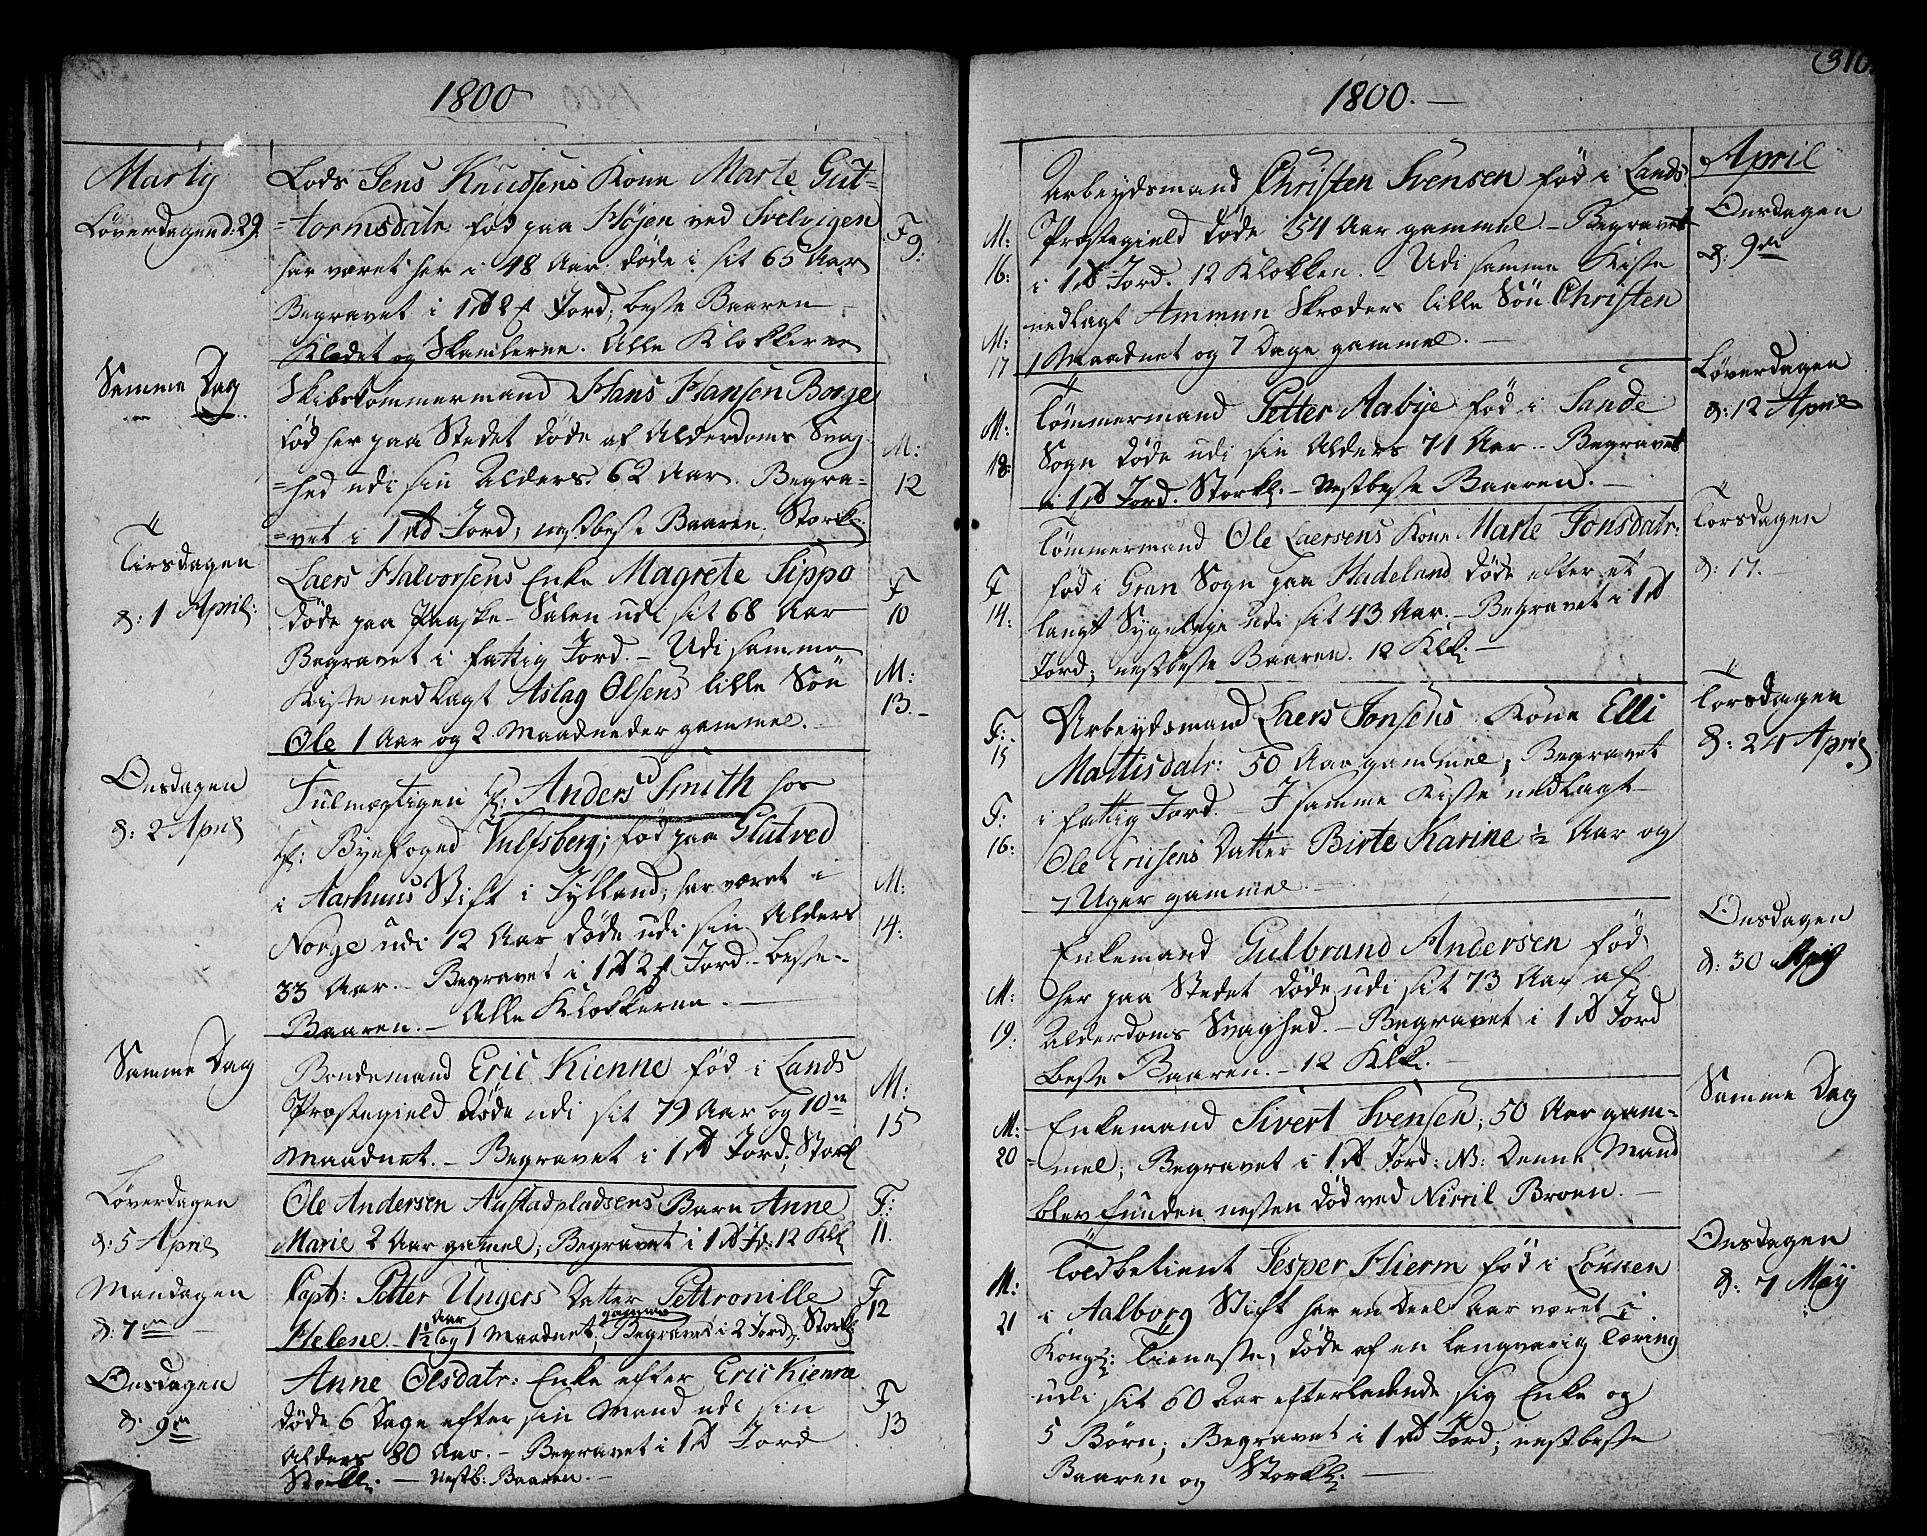 1800
Martij
Løverdagen d: 29.
Lods Jens Knudsens Kone Marte Gut=
=tormsdatr. fød paa Højen ved Svelvigen
har været her i 48 Aar. døde i sit 65 Aar
Begravet i 1 rd 2 f Jord; beste Baaren
Klædet og Skamlerne. Alle Klokkerne
F
9:
Samme Dag
Skibstømmermand Hans Hansen Borge
fød her paa Stedet døde af Alderdoms Svag-
=hed udi sin Alders 62 Aar. Begra=
=vet i 1 rd Jord; nestbeste Baaren. Storkl.
M:
12
Tirsdagen
d: 1 April:
Laers Halvorsens Enke Magrete Sippo
døde paa Paaske-Salen udi sit 68 Aar
Begravet i fattig Jord. - Udi samme
Kiste nedlagt Aslag Olsens lille Søn
Ole 1 Aar og 2 Maadneder gammel. -
F
10
M:
13. -
Onsdagen
d: 2 April
Fulmægtigen Hr: Anders Smith hos
Hr: Byefoged Vulfsberg; fød paa Glatved
i Aarhuus Stift i Jylland; har været i
Norge udi 12 Aar døde udi sin Alders
33 Aar. - Begravet i 1 rd 2 f Jord. - beste-
Baaren. - Alle Klokkerne. -
M:
14:
Samme Dag
Bondemand Eric Kienne fød i Lands
Præstegield døde udi sit 79 Aar og 10de
Maadnet. - Begravet i 1 rd Jord; Storkl
M:
15
Løverdagen
d: 5 April
Ole Andersen Austadpladsens Barn Anne
Marie 2 Aar gamel; Begravet i 1 rd Jd: 12 Klk
F:
11.
Mandagen
d: 7de
Capt: Petter Ungers Datter Pettronille
Helene. - 1½ Aar og 1 Maadnet gammel; Begravet i 2 Jord, Storkl
F
12
Onsdagen
d: 9de
Anne Olsdatr: Enke efter Eric Kienne
døde 6 Dage efter sin Mand udi sin
Alders 80 Aar. - Begravet i 1 rd Jord
Storkl: - Nestb: Baaren. -
F
13
310.
1800. -
April
Onsdagen
d: 9de
M:
16:
M:
17
Arbeydsmand Christen Svensen fød i Lands
Præstegield døde 54 Aar gammel. - Begravet
i 1 rd Jord. 12 Klokken. Udi samme Kiste
nedlagt Ammun Skræders lille Søn Christen
1 Maadnet og 7 Dage gammel. -
Løverdagen
d: 12 April
M:
18:
Tømmermand Petter Aabye fød i Sande
Sogn døde udi sin Alders 71 Aar. - Begravet
i 1 rd Jord. Storkl. - Nestbeste Baaren. -
Torsdagen
d: 17. -
F
14:
Tømmermand Ole Laersens Kone Marte Jonsdatr:
fød i Gran Sogn paa Hadeland døde efter et
langt Sygeleje udi sit 43 Aar. - Begravet i 1 rd
Jord; nestbeste Baaren. 12 Klk: -
Torsdagen
d: 24 April
F:
15
F:
16:
Arbeydsmand Laers Jonsens Kone Elli
Mattisdatr: 50 Aar gammel; Begravet
i fattig Jord. - I samme Kiste nedlagt
Ole Criisens Datter Birte Karine ½ Aar og
7 Uger gammel. -
Onsdagen
d: 30 April
M:
19:
Enkemand Gulbrand Andersen fød
her paa Stedet døde udi sit 73 Aar af
Alderdoms Svaghed. - Begravet i 1 rd Jord
beste Baaren. - 12 Klk. -
Samme Dag
M:
20
Enkemand Sivert Svensen; 50 Aar gam=
=mel; Begravet i 1 rd Jord: NB: Denne Mand
blev funden nesten død ved Nirril Broen. -
Onsdagen
d: 7 Maÿ
M:
21
Toldbetient Jesper Hierm fød i Løkken
i Aalborg Stift har en Deel Aar været i
Kongl: Tieneste, døde af en langvarig Tæring
udi sit 60 Aar efterladende sig Enke og
5 Børn; Begravet i 1 rd Jord; nestbeste
Baaren og Storkl: -